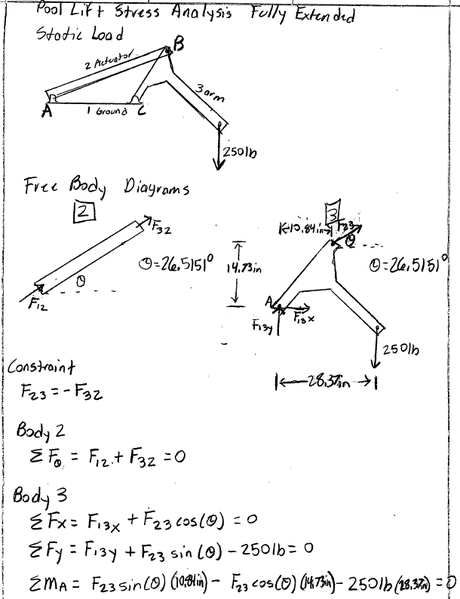 Pool Lift Stress Analysis Fully Extended
Static Load
B
2 Actuator
3 arm
A
1 Ground
C
250lb
Free Body Diagrams
2
3
F32
θ
θ=26.5151°
F12
10.84in
F23
θ
14.73in
θ=26.5151°
A
F13x
F13y
250lb
28.37in
Constraint
F23 = -F32
Body 2
ΣFθ = F12 + F32 = 0
Body 3
ΣFx = F13x + F23 cos(θ) = 0
ΣFy = F13y + F23 sin(θ) - 250lb = 0
ΣMA = F23 sin(θ)(10.84in) - F23 cos(θ)(14.73in) - 250lb(28.37in) = 0